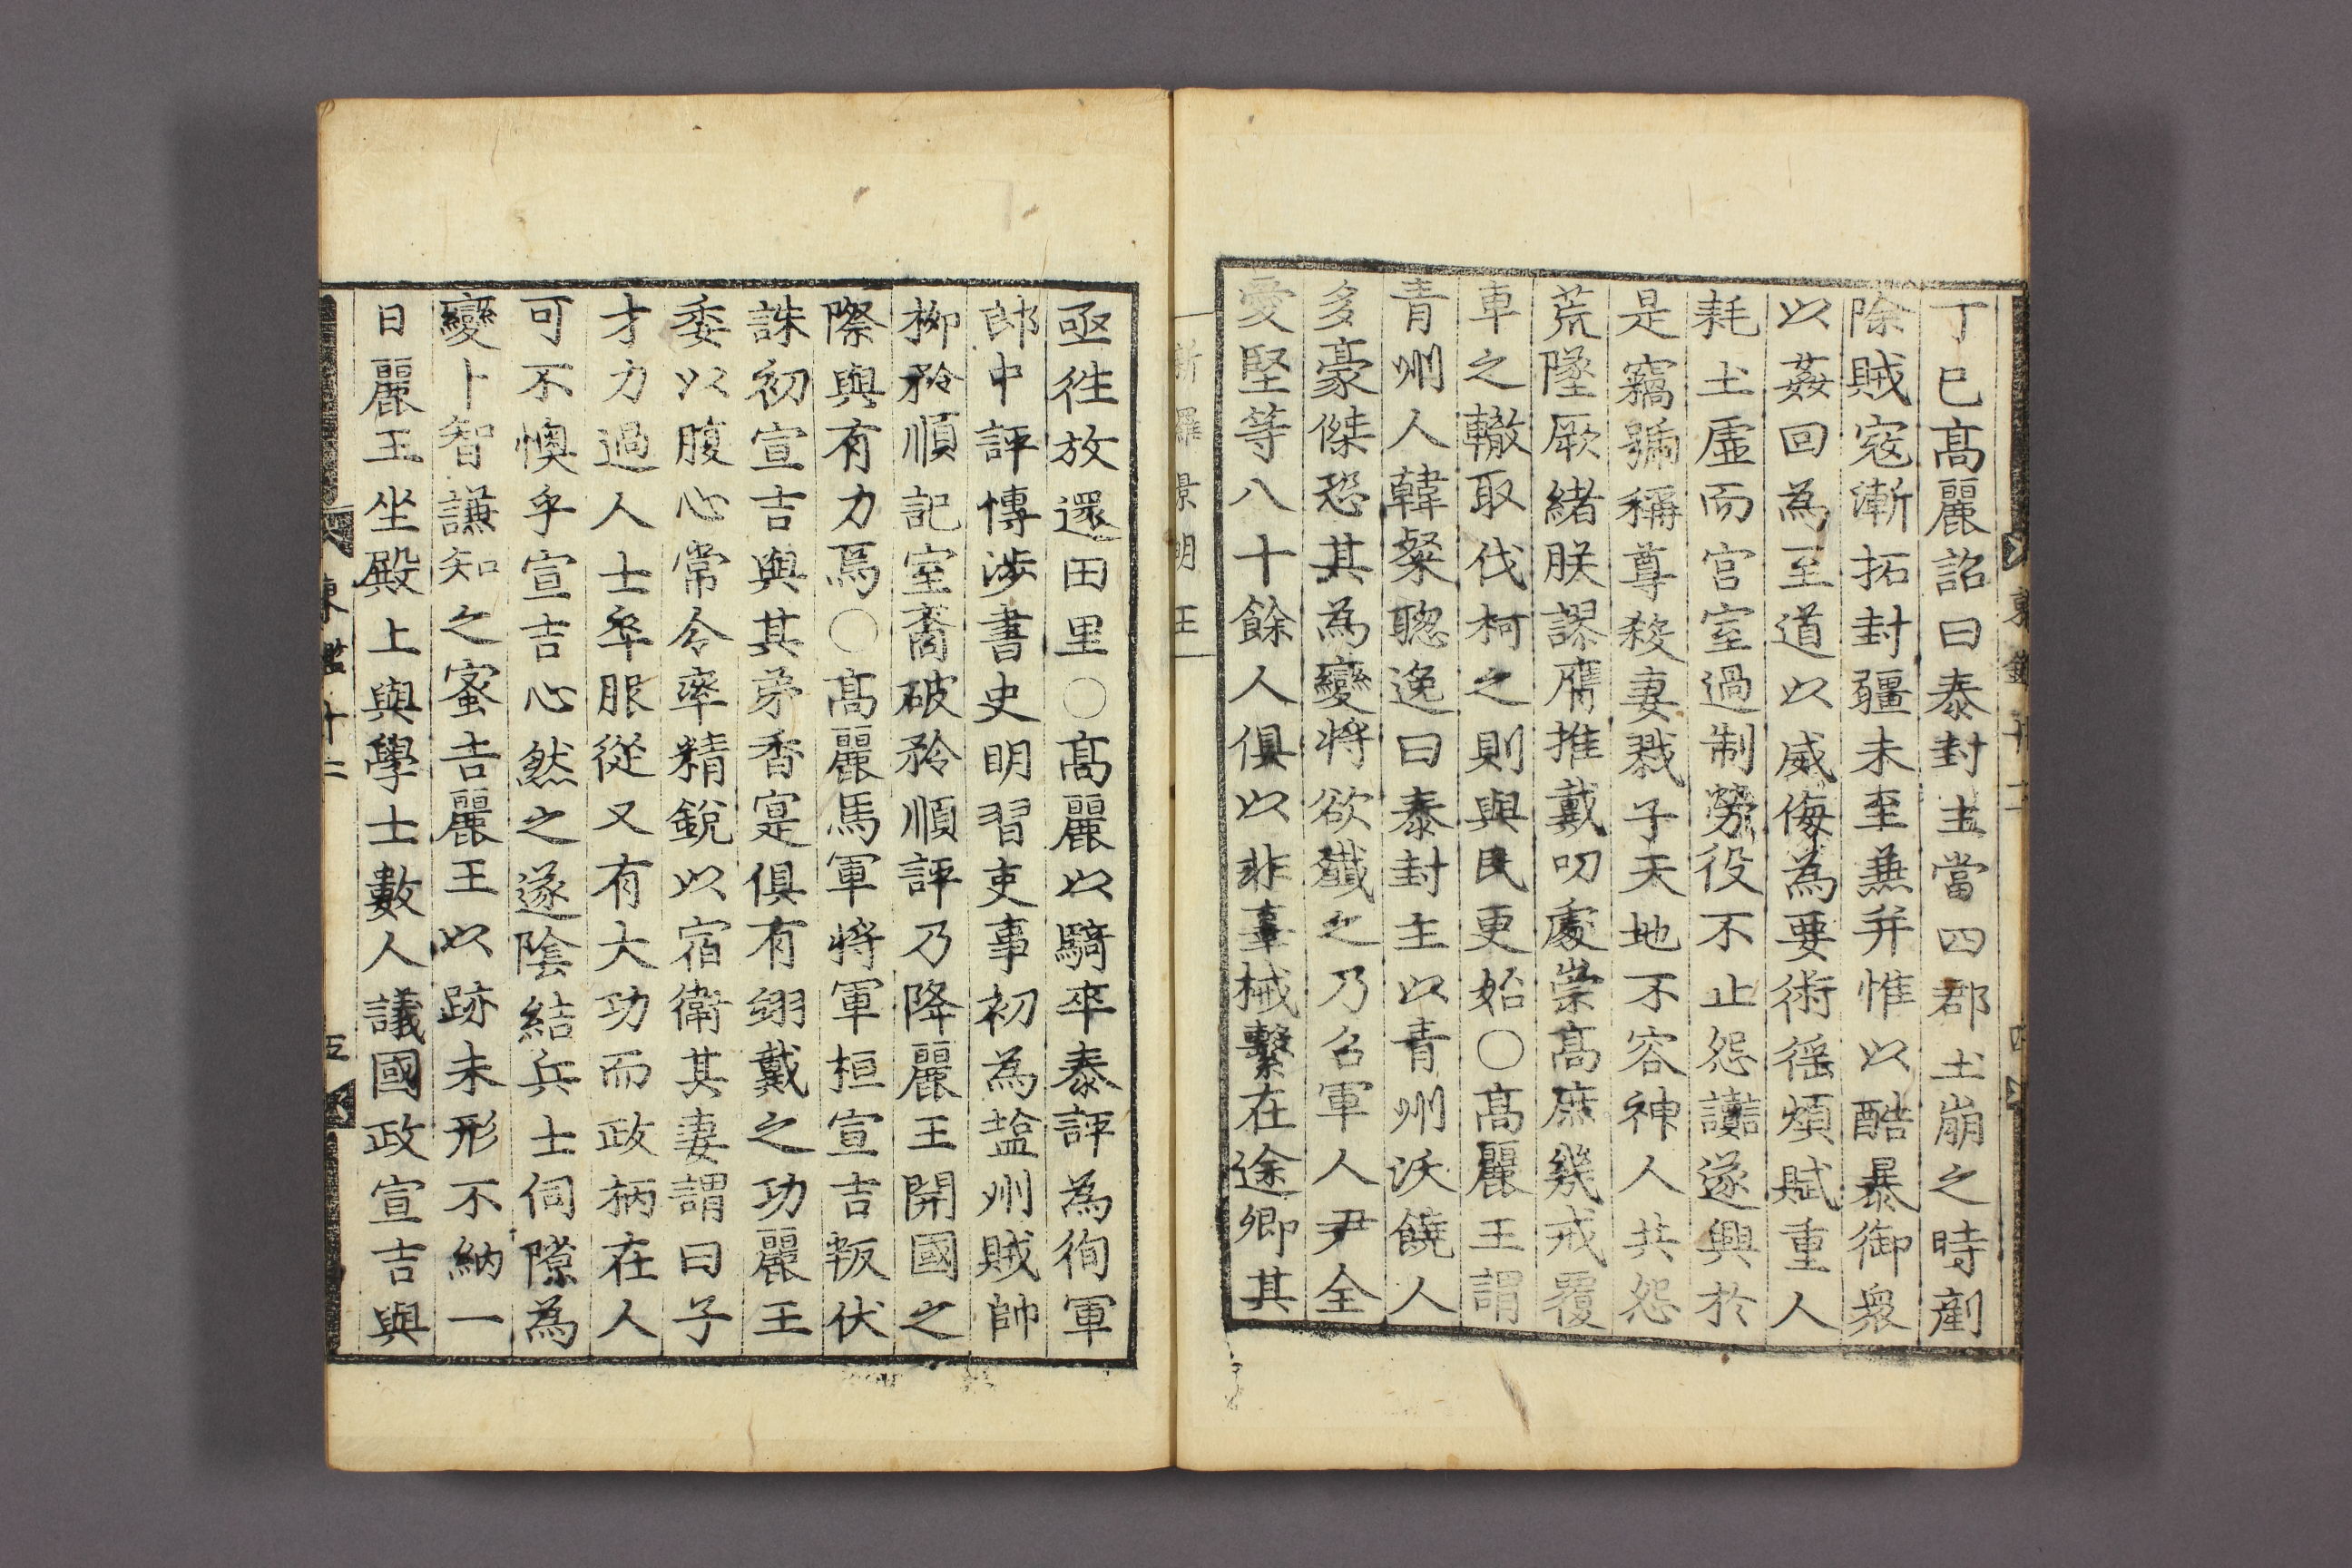 丁巳高麗詔曰泰封主當四郡土崩之時剷
除賊寇漸拓封疆未至兼并惟以酷暴御衆
以姦回為至道以威侮為要術徭煩賦重人
耗土虛而宮室過制勞役不止怨讟遂興於
是竊號稱尊殺妻戮子天地不容神人共怨
荒墜厥緒朕謬膺推戴叨處崇高庶幾戒覆
車之轍取伐柯之則與民更始○高麗王謂
青州人韓粲聰逸曰泰封主以青州沃饒人
多豪傑恐其為變將欲殲之乃召軍人尹全
愛堅等八十餘人俱以非辜械繫在途卿其
新羅景明王
亟徃放還田里○高麗以騎卒泰評為徇軍
郎中評博涉書史明習吏事初為塩州賊帥
柳矜順記室裔破矜順評乃降麗王開國之
際與有力焉○高麗馬軍將軍桓宣吉叛伏
誅初宣吉與其弟香寔俱有翊戴之功麗王
委以腹心常令率精銳以宿衛其妻謂曰子
才力過人士卒服從又有大功而政柄在人
可不懊乎宣吉心然之遂陰結兵士伺隙為
變卜智謙知之蜜告麗王以跡未形不納一
日麗王坐殿上與學士數人議國政宣吉與
東鑑十二
五